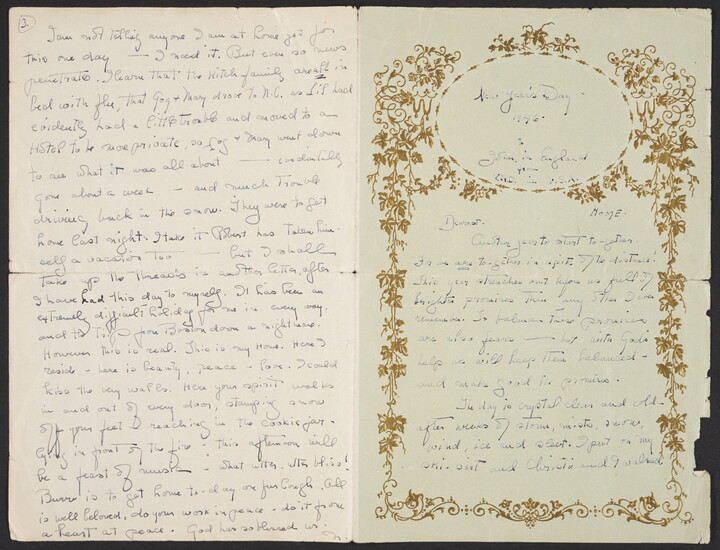 3.
I am not telling anyone I am at home yet for
this one day — I need it. But even so news
penetrates. I learn that the Hitch family are all in
bed with flu, that Gog + Mary drove to N.C. as Lil had
evidently had a little trouble and moved to a
Hotel to be more private, so Gog + Mary went down
to see what it was all about — evidently
gone about a week — and much trouble
driving back in the snow. They were to get
home last night. I take it Robert has taken him-
self a vacation too — but I shall
take up the threads in another letter, after
I have had this day to myself. It has been an
extremely difficult holiday for me in every way.
and the trip from Boston down a nightmare.
However this is real. This is my Home. Here I
reside - here is beauty, peace - love. I could
kiss the very walls. Here your spirit walks
in and out of every door, stamping snow
off your feet & reaching in the cookie jar -
lying in front of the fire - this afternoon will
be a feast of music - what utter, utter bliss!
Burr is to get home to-day on furlough. All
is well beloved, do your work in peace - do it from
a heart at peace. God has so blessed us.
New Year's Day -
John, in England
HOME.
Dearest.
Another year to start together.
For we are together in spite of the distance!
This year stretches out before us full of
brighter promises than any other I ever
remember. To balance these promises
are also fears — but with God's
help we will keep them balanced -
and make good its promises.
To day is crystal clear and cold
after weeks of storms, mists, snow,
wind, ice and sleet. I put on my
ski-suit and and I walked